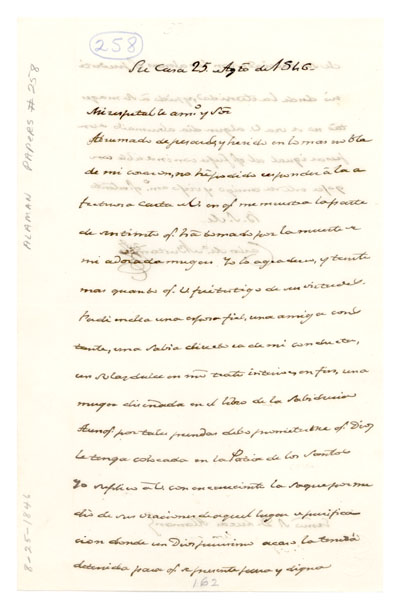 258
Su Casa 25 Agto de 1846.
Mi respetable amo y Sor
Abrumado de pesares, y herido en lo mas noble
de mi corazon, no he podido responder á la a
fectuosa carta de V. en qe me muestra la parte
de sentimto qe ha tomado por la muerte de
mi adorada muger. Yo lo agradezco, y tanto
mas quanto qe V. fue testigo de sus virtudes.
Perdí en ella una esposa fiel, una amiga cons
tante, una sabia directora de mi conducta,
un solaz dulce en mi trato interior, en fin, una
muger diseñada en el libro de la Sabiduria
Aunqe por tales prendas debo prometerme qe Dios
la tenga colocada en la Patria de los Santos
Yo suplico á V. con encarecimto la saque por me
dio de sus oraciones de aquel lugar de purifica
cion donde un Dios purisimo acaso la tendrá
detenida para qe se presente pura y digna
162
ALAMAN PAPERS # 258
8-25-1846